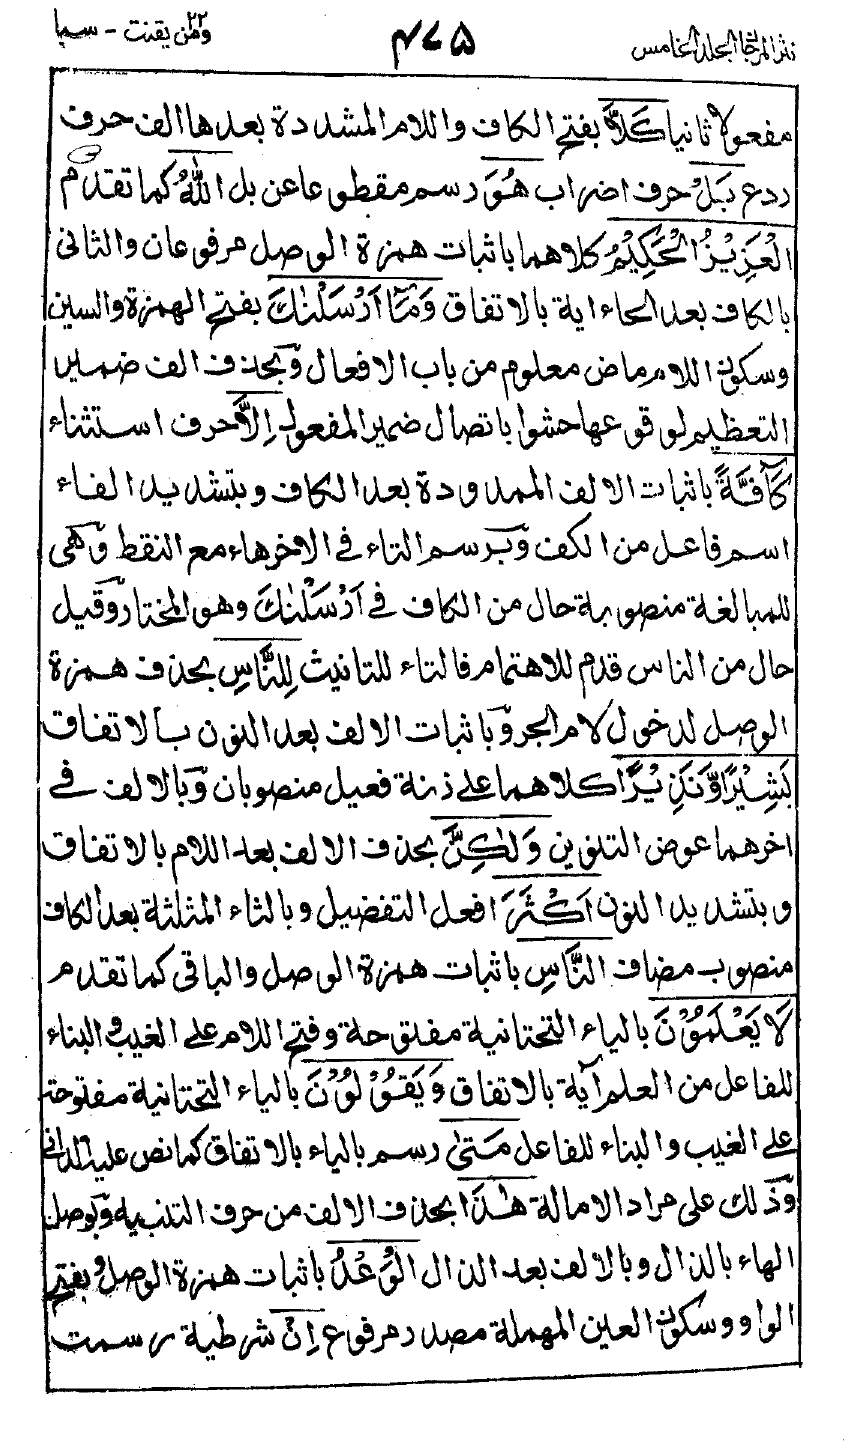 نثر المرجان المجلد الخامس
۴۷۵
ومن يقنت ۲۲ - سبا
مفعولا ثانيا كَلَّا بفتح الكاف واللام المشددة بعدها الف حرف
ردع بَلْ حرف اضراب هُوَ رسم مقطوعا عن بل اللّٰهُ كما تقدم
الْعَزِيْزُ الْحَكِيْمُ كلاهما باثبات همزة الوصل مرفوعان والثانى
بالكاف بعد الحاء اية بالاتفاق وَمَآ اَرْسَلْنٰكَ بفتح الهمزة والسين
وسكون اللام ماض معلوم من باب الافعال وبحذف الف ضمير
التعظيم لوقوعها حشوا باتصال ضمير المفعول اِلَّا حرف استثناء
كَآفَّةً باثبات الالف الممدودة بعد الكاف وبتشديد الفاء
اسم فاعل من الكف وبرسم التاء فى الاخرهاء مع النقط وهى
للمبالغة منصوبة حال من الكاف فى اَرْسَلْنٰكَ وهو المختار وقيل
حال من الناس قدم للاهتمام فالتاء للتانيث لِلنَّاسِ بحذف همزة
الوصل لدخول لام الجر وباثبات الالف بعد النون بالاتفاق
بَشِيْرًا وَّنَذِيْرًا كلاهما على زنة فعيل منصوبان وبالالف فى
اخرهما عوض التنوين وَلٰكِنَّ بحذف الالف بعد اللام بالاتفاق
وبتشديد النون اَكْثَرَ افعل التفضيل وبالثاء المثلثة بعد الكاف
منصوب مضاف النَّاسِ باثبات همزة الوصل والباقى كما تقدم
لَا يَعْلَمُوْنَ بالياء التحتانية مفتوحة وفتح اللام على الغيب والبناء
للفاعل من العلم آية بالاتفاق وَيَقُوْلُوْنَ بالياء التحتانية مفتوحة
على الغيب والبناء للفاعل مَتٰى رسم بالياء بالاتفاق كما نص عليه الدانى
وذلك على مراد الامالة هٰذَا بحذف الالف من حرف التنبيه وبوصل
الهاء بالذال وبالالف بعد الذال الْوَعْدُ باثبات همزة الوصل وبفتح
الواو وسكون العين المهملة مصدر مرفوع اِنْ شرطية رسمت